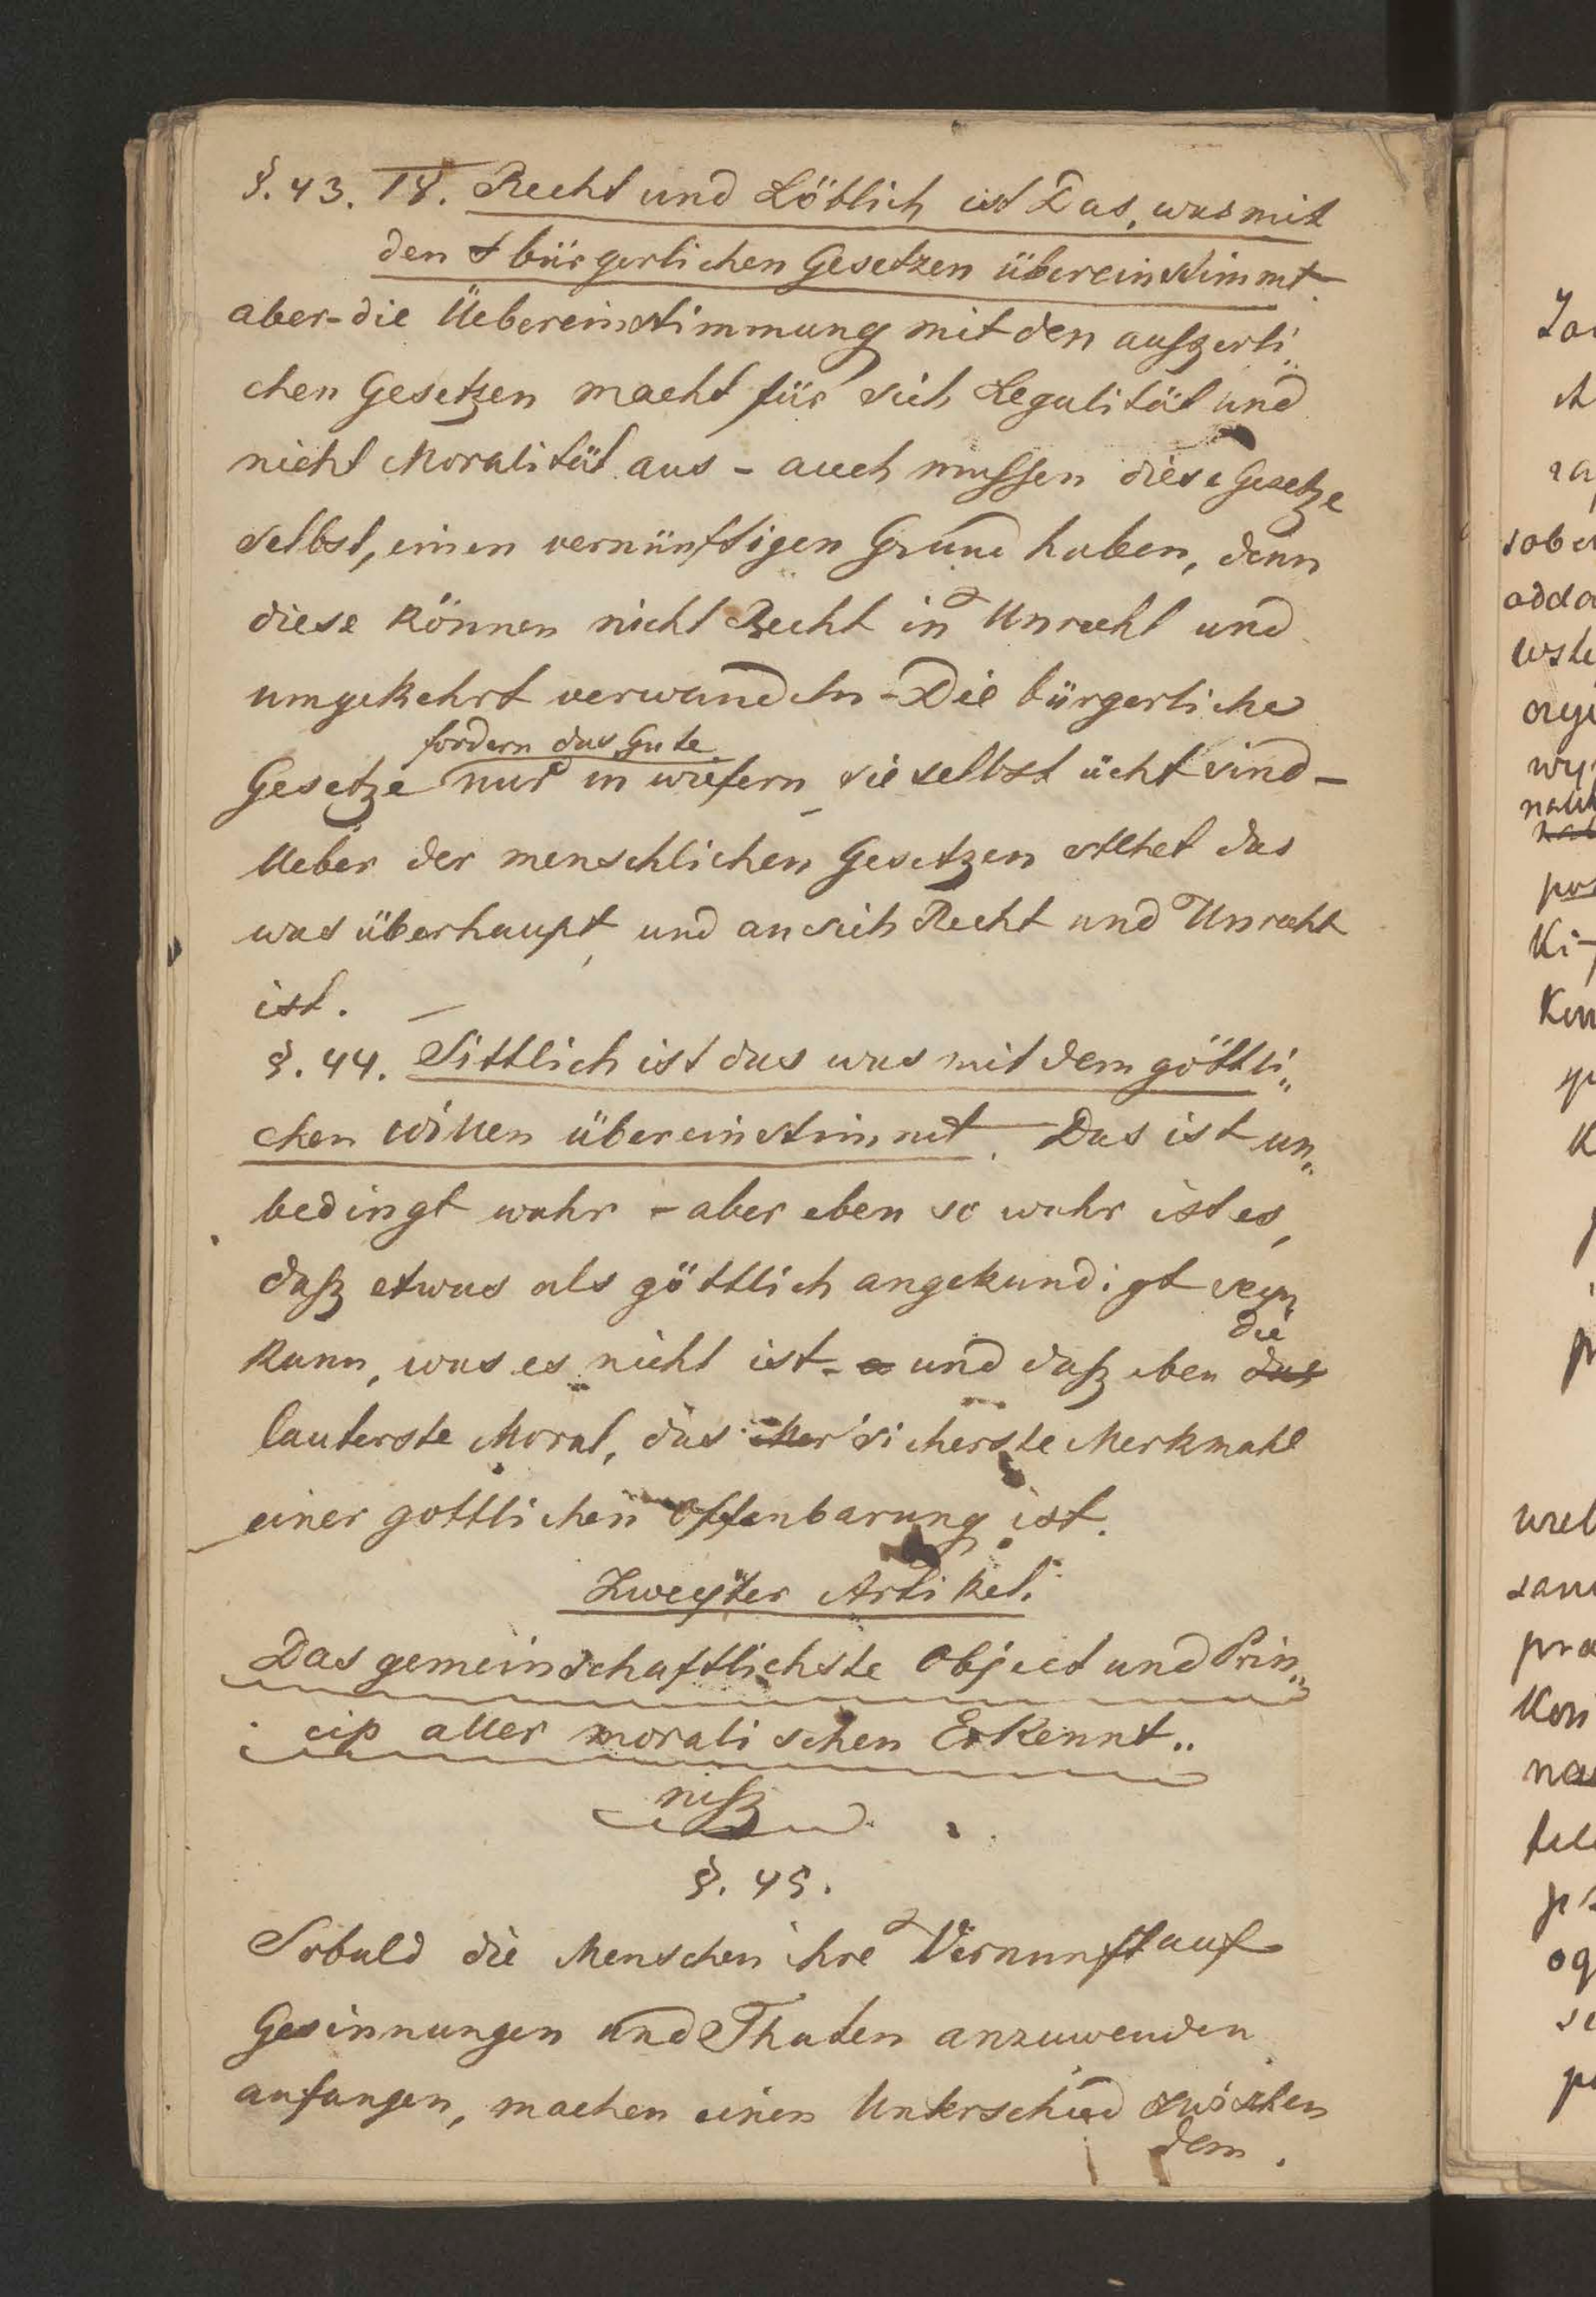 §. 43. 18. Recht und Löblich ist Das, was mit
den bürgerlichen Gesetzen übereinstimmt.
aber- die Üebereinstimmung mit den auszerli„
chen Gesetzen macht für sich Legalität und
nicht Moralität aus - auch mussen diese Gesetze
selbst, einen vernünftigen Grund haben, denn
diese können nicht Recht in Unrecht und
umgekehrt verwandeln - Die bürgerliche
fordern das Gute
Gesetze nur in wiefern sie selbst ächt sind -
Ueber der menschlichen Gesetzen stehet das
was überhaupt, und an sich Recht und Unrecht
ist. —
§. 44. Sittlich ist das was mit dem göttli„
chen Willen übereinstimmt. Das ist un„
bedingt wahr - aber eben so wahr ist es,
dasz etwas als göttlich angekundigt seyn
die
kann, was es nicht ist - und dasz eben das
lauterste Moral, das Mer sicherste Merkmahl
einer gottlichen Offenbarung ist.
Zweyter Artikel.
Das gemeinschaftlichste Object und Prin„
cip aller moralischen Erkennt„
nisz
§. 45.
Sobald die Menschen ihre Vernunft auf
Gesinnungen und Thaten anzuwenden
anfangen, machen einen Unterschied zwischen
dem.